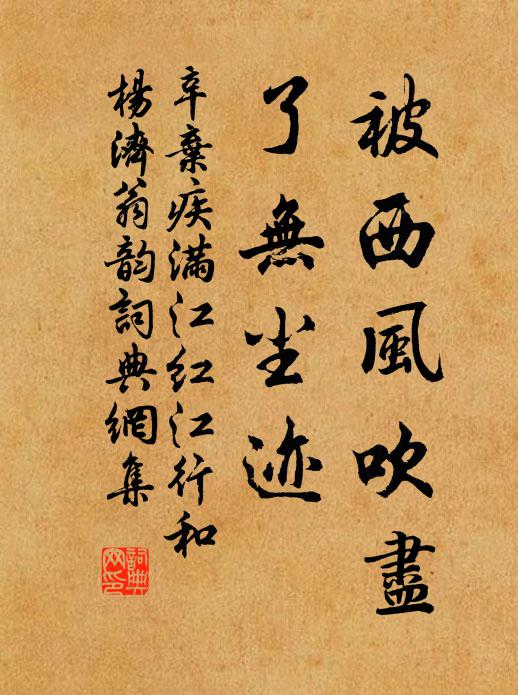 被西風吹盡
了無尘迹
辛棄疾滿江红江行和
楊濟翁韵詞典網集
詞典
网印